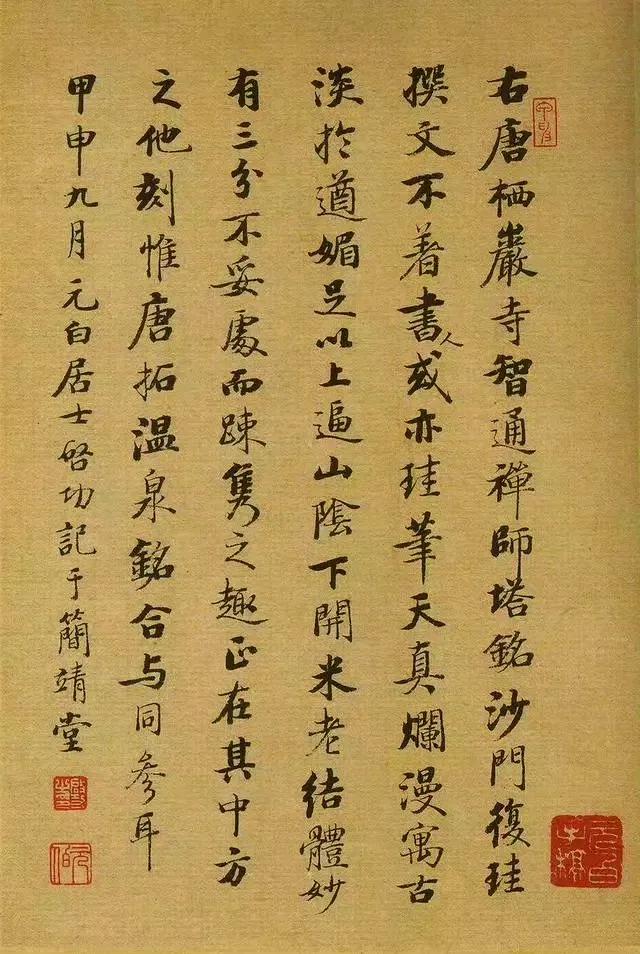 右唐栖巖寺智通禪師塔銘沙門復珪
撰文不著書人或亦珪筆天真爛漫寓古
淡於遒媚足以上逼山陰下開米老結體妙
有三分不妥處而踈雋之趣正在其中方
之他刻惟唐拓温泉銘合与同參耳
甲申九月元白居士啓功記于簡靖堂
啓功
元伯